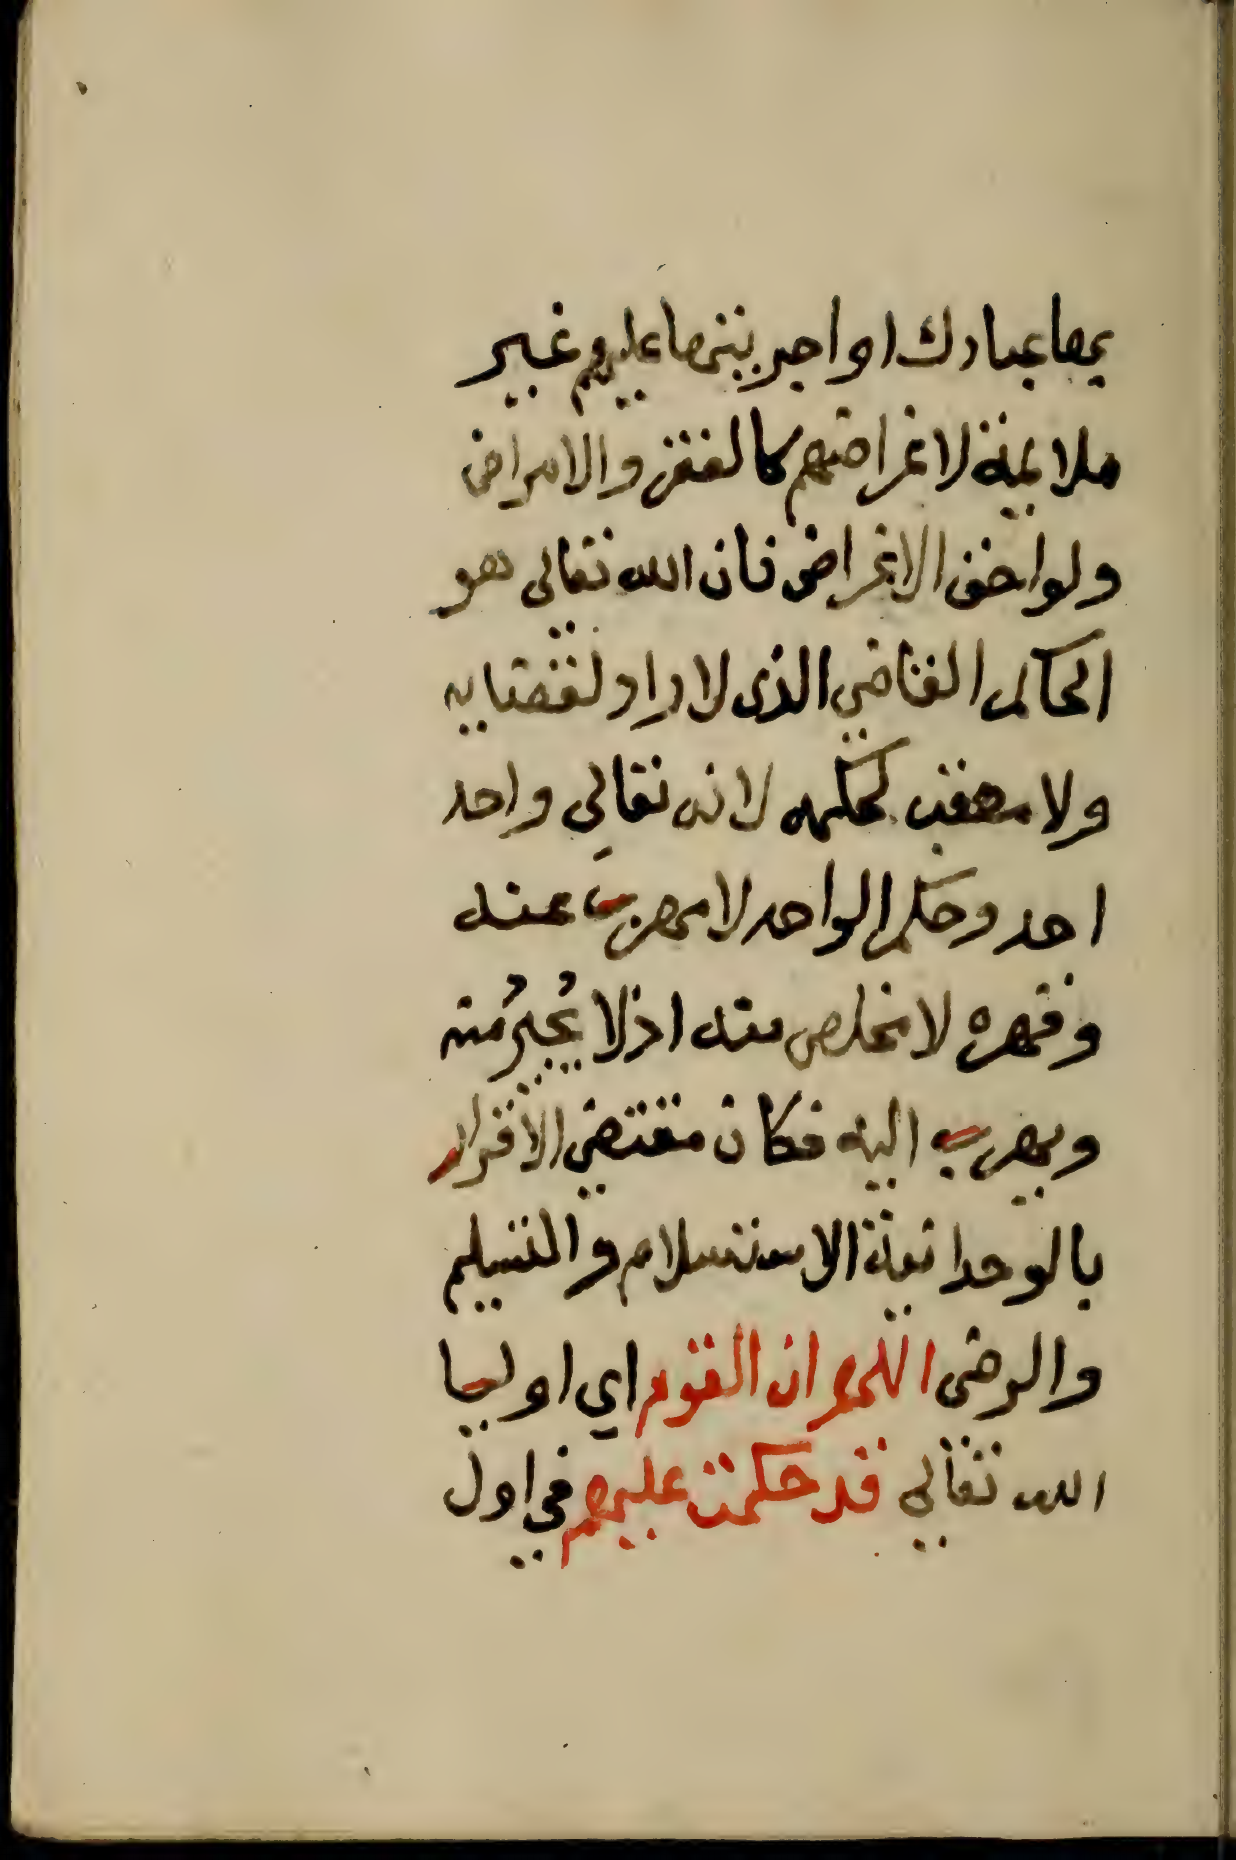 بها عبادك او اجريتها عليهم غير
ملايمة لاغراضهم كالفقر والامراض
ولواحق الاغراض فان الله تعالى هو
الحاكم القاضي الذى لا راد لقضايه
ولا معقب لحكمه لانه تعالى واحد
احد وحكم الواحد لا مهرب عنه
وقهره لا مخلص منه اذ لا يُجيرُ منه
ويهرب اليه فكان مقتضي الاقرار
بالوحدانية الاستسلام والتسليم
والرضى اللهم ان القوم اي اوليا
الله تعالي قد حكمت عليهم في اول